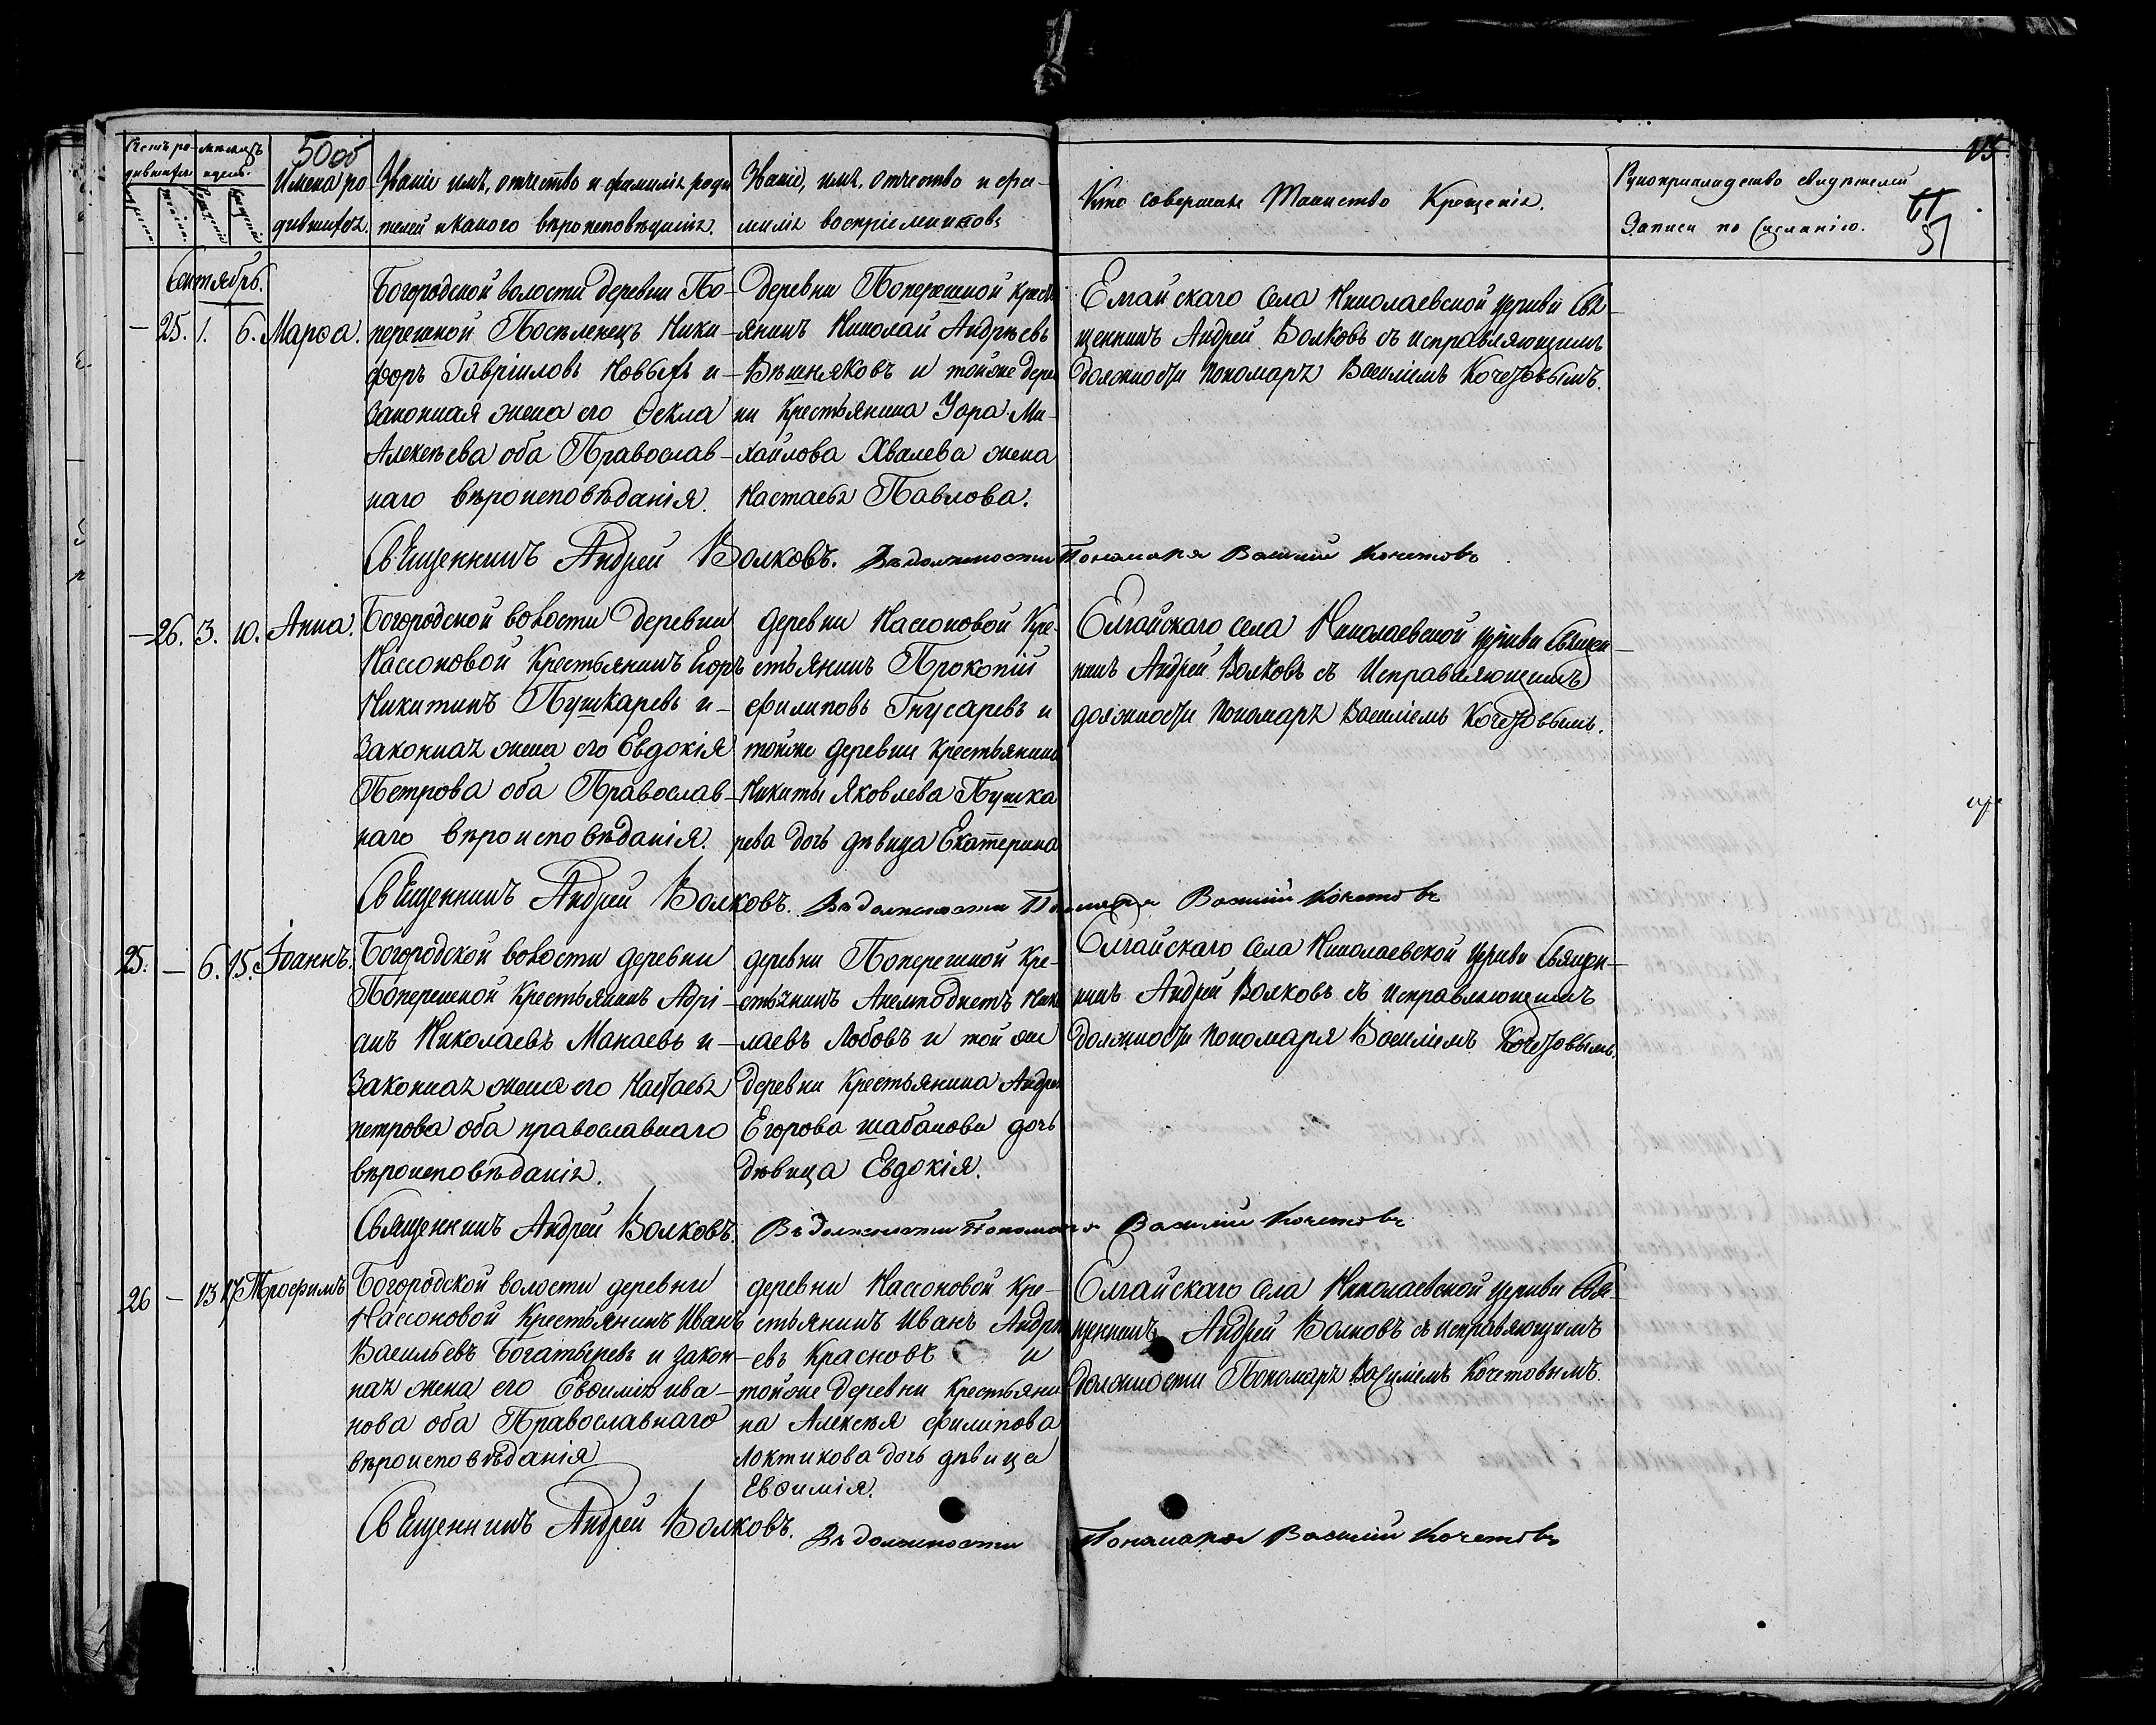 50 об
15
51
Счетъ ро-
дившихся
мѣсяцъ
и день
Имена ро-
дившихся.
Званіе имя, отчество и фамилія роди
телей и какого вѣроисповѣданія.
Званіе, имя, отчество и фа-
милія воспріемниковъ
Кто совершалъ Таинство Крещенія.
Рукоприкладство свидѣтелей
Записи по желанію.
Сентябрь.
— 25. 1. 6. Марѳа.
Богородской волости деревни По-
перешной Поселенецъ Ники-
форъ Гавріиловъ Новыхъ и
законная жена его Ѳекла
Алексѣева оба Православ-
наго вѣроисповѣданія.
деревни Поперешной кресть
янинъ Николай Андрѣевъ
Вѣшняковъ и тойже дерев
ни Крестьянина Уара Ми-
хайлова Хвалева жена
Настасья Павлова.
Елгайскаго села Николаевской церкви Свя-
щенникъ Андрей Волковъ съ исправляющимъ
должность пономаря Василіемъ Кочетовымъ.
Священникъ Андрей Волковъ. Въ должности Пономаря Василій Кочетовъ
— 26. 3. 10. Анна.
Богородской волости деревни
Нассоновой Крестьянинъ Егоръ
Никитинъ Пушкаревъ и
законная жена его Евдокія
Петрова оба Православ-
наго вѣроисповѣданія.
деревни Нассоновой Кре-
стьянинъ Прокопій
Филиповъ Гнусаревъ и
тойже деревни крестьянина
Никиты Яковлева Пушка
рева дочь дѣвица Екатерина
Елгайскаго села Николаевской церкви Священ-
никъ Андрей Волковъ съ Исправляющимъ
должность пономаря Василіемъ Кочетовымъ.
Священникъ Андрей Волковъ. Въ должности Пономаря Василій Кочетовъ
25. — 6. 15. Іоаннъ.
Богородской волости деревни
Поперешной Крестьянинъ Адрі-
анъ Николаевъ Макаевъ и
законная жена его Настасья
петрова оба православнаго
вѣроисповѣданія.
деревни Поперешной Кре-
стьянинъ Акемподистъ Нико
лаевъ Лобовъ и той же
деревни Крестьянина Андрея
Егорова шабанова дочь
дѣвица Евдокія.
Елгайскаго села Николаевской церкви Священ-
никъ Андрей Волковъ съ исправляющимъ
должность пономаря Василіемъ Кочетовымъ.
Священникъ Андрей Волковъ. Въ должности Пономаря Василій Кочетовъ
26 — 13 17 Трофимъ
Богородской волости деревни
Нассоновой Крестьянинъ Иванъ
Васильевъ Богатыревъ и закон-
ная жена его Евѳимія ива-
нова оба Православнаго
вѣроисповѣданія
деревни Нассоновой Кре-
стьянинъ Иванъ Андрѣ
евъ Красновъ и
тойже деревни крестьяни
на Алексѣя Филипова
Локтикова дочь дѣвица
Евѳимія.
Елгайскаго села Николаевской церкви Свя-
щенникъ Андрей Волковъ съ исправляющимъ
должности Пономаря Василіемъ Кочетовымъ.
Священникъ Андрей Волковъ. Въ должности Пономаря Василій Кочетовъ